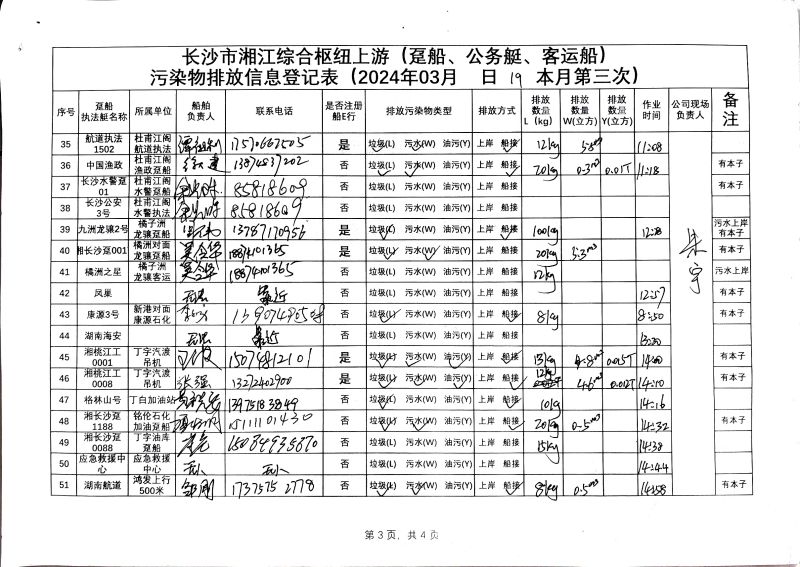 长沙市湘江综合枢纽上游（趸船、公务艇、客运船）
污染物排放信息登记表（2024年03月 19 日 本月第三次）
序号 趸船执法艇名称 所属单位 船舶负责人 联系电话 是否注册船E行 排放污染物类型 排放方式 排放数量L（kg） 排放数量W(立方) 排放数量Y(立方) 作业时间 公司现场负责人 备注
35 航道执法1502 杜甫江阁航道执法 17570667505 是 垃圾(L) 污水(W) 油污(Y) 上岸 船接 12kg 11:08
36 中国渔政 杜甫江阁渔政趸船 徐建 13874837202 否 垃圾(L) 污水(W) 油污(Y) 上岸 船接 20kg 0.3m³ 0.01T 11:18 有本子
37 长沙水警趸01 杜甫江阁水警趸船 85818609 否 垃圾(L) 污水(W) 油污(Y) 上岸 船接 有本子
38 长沙公安3号 杜甫江阁水警执法 85818609 否 垃圾(L) 污水(W) 油污(Y) 上岸 船接
39 九洲龙骧2号 橘子洲龙骧趸船 13787170956 是 垃圾(L) 污水(W) 油污(Y) 上岸 船接 100kg 12:28 朱宇 污水上岸有本子
40 湘长沙趸001 橘洲对面龙骧趸船 18874101365 是 垃圾(L) 污水(W) 油污(Y) 上岸 船接 20kg 3.3m³ 有本子
41 橘洲之星 橘子洲龙骧客运 18874101365 否 垃圾(L) 污水(W) 油污(Y) 上岸 船接 12kg 污水上岸
42 凤巢 无人 靠近 否 垃圾(L) 污水(W) 油污(Y) 上岸 船接 12:57
43 康源3号 新港对面康源石化 否 垃圾(L) 污水(W) 油污(Y) 上岸 船接 8kg 8:50 有本子
44 湖南海安 无人 靠近 否 垃圾(L) 污水(W) 油污(Y) 上岸 船接 13:20
45 湘桃江工0001 丁字汽渡吊机 15079812101 是 垃圾(L) 污水(W) 油污(Y) 上岸 船接 13kg 4.8m³ 0.015T 14:00 有本子
46 湘桃江工0008 丁字汽渡吊机 张强 13272402900 是 垃圾(L) 污水(W) 油污(Y) 上岸 船接 12kg 4.6m³ 0.012T 14:10 有本子
47 格林山号 丁白加油站 13975183849 否 垃圾(L) 污水(W) 油污(Y) 上岸 船接 10kg 14:16
48 湘长沙趸1188 铭伦石化加油趸船 15111101430 否 垃圾(L) 污水(W) 油污(Y) 上岸 船接 20kg 0.5m³ 14:32 有本子
49 湘长沙趸0088 丁字油库趸船 15084935870 否 垃圾(L) 污水(W) 油污(Y) 上岸 船接 15kg 14:38
50 应急救援中心 应急救援中心 无人 无人 否 垃圾(L) 污水(W) 油污(Y) 上岸 船接 14:44
51 湖南航道 鸿发上行500米 邹刚 17375752778 否 垃圾(L) 污水(W) 油污(Y) 上岸 船接 8kg 0.5m³ 14:58 有本子
第 3 页，共 4 页